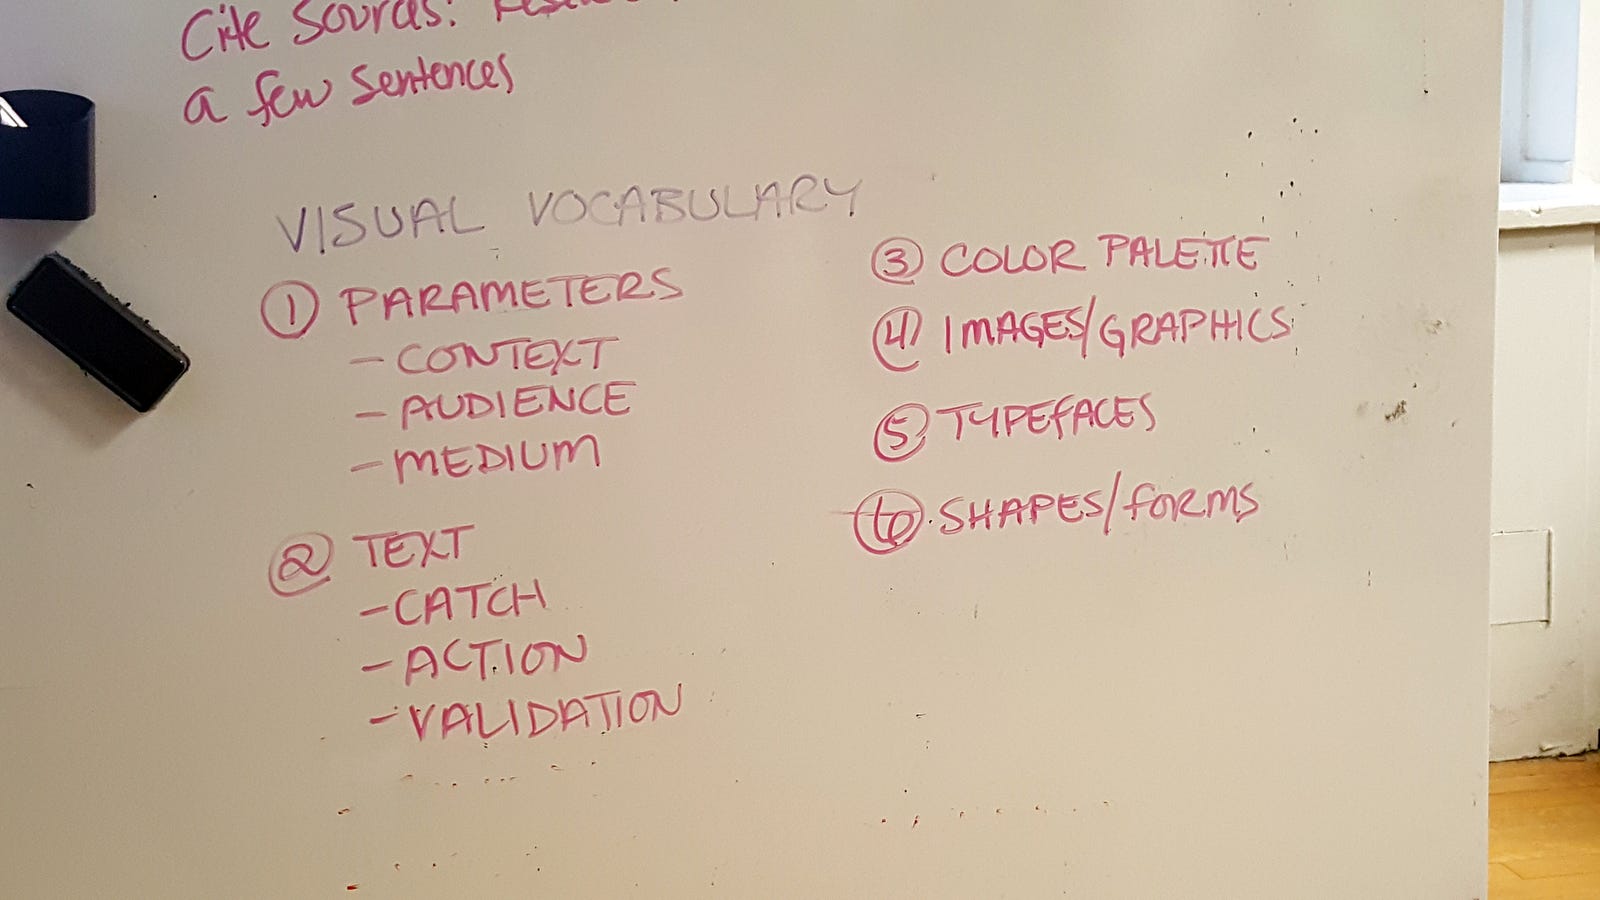 Cite Sources:
a few sentences
VISUAL VOCABULARY
① PARAMETERS
- CONTEXT
- AUDIENCE
- MEDIUM
② TEXT
- CATCH
- ACTION
- VALIDATION
③ COLOR PALETTE
④ IMAGES/GRAPHICS
⑤ TYPEFACES
⑥ SHAPES/FORMS